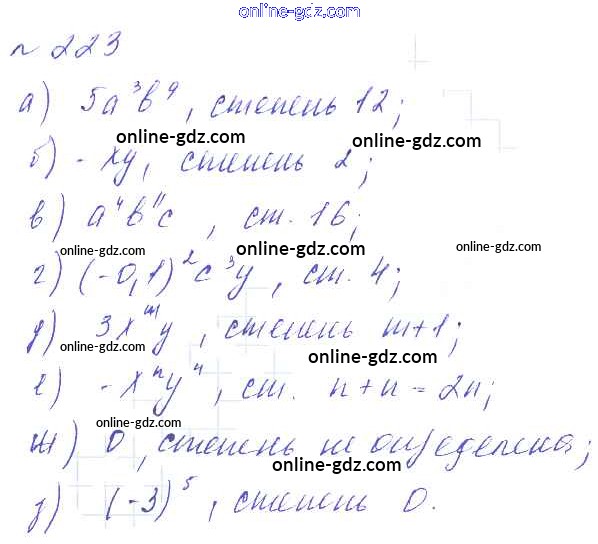 online-gdz.com
№ 223
а) 5a³b⁹, степень 12;
online-gdz.com
б) -xy, степень 2;
online-gdz.com
в) a⁴b¹¹c, ст. 16;
online-gdz.com
online-gdz.com
г) (-0,1)²c³y, ст. 4;
online-gdz.com
д) 3xᵐy, степень m+1;
online-gdz.com
е) -xⁿyⁿ, ст. n+n=2n;
online-gdz.com
ж) 0, степень не определена;
online-gdz.com
з) (-3)⁵, степень 0.